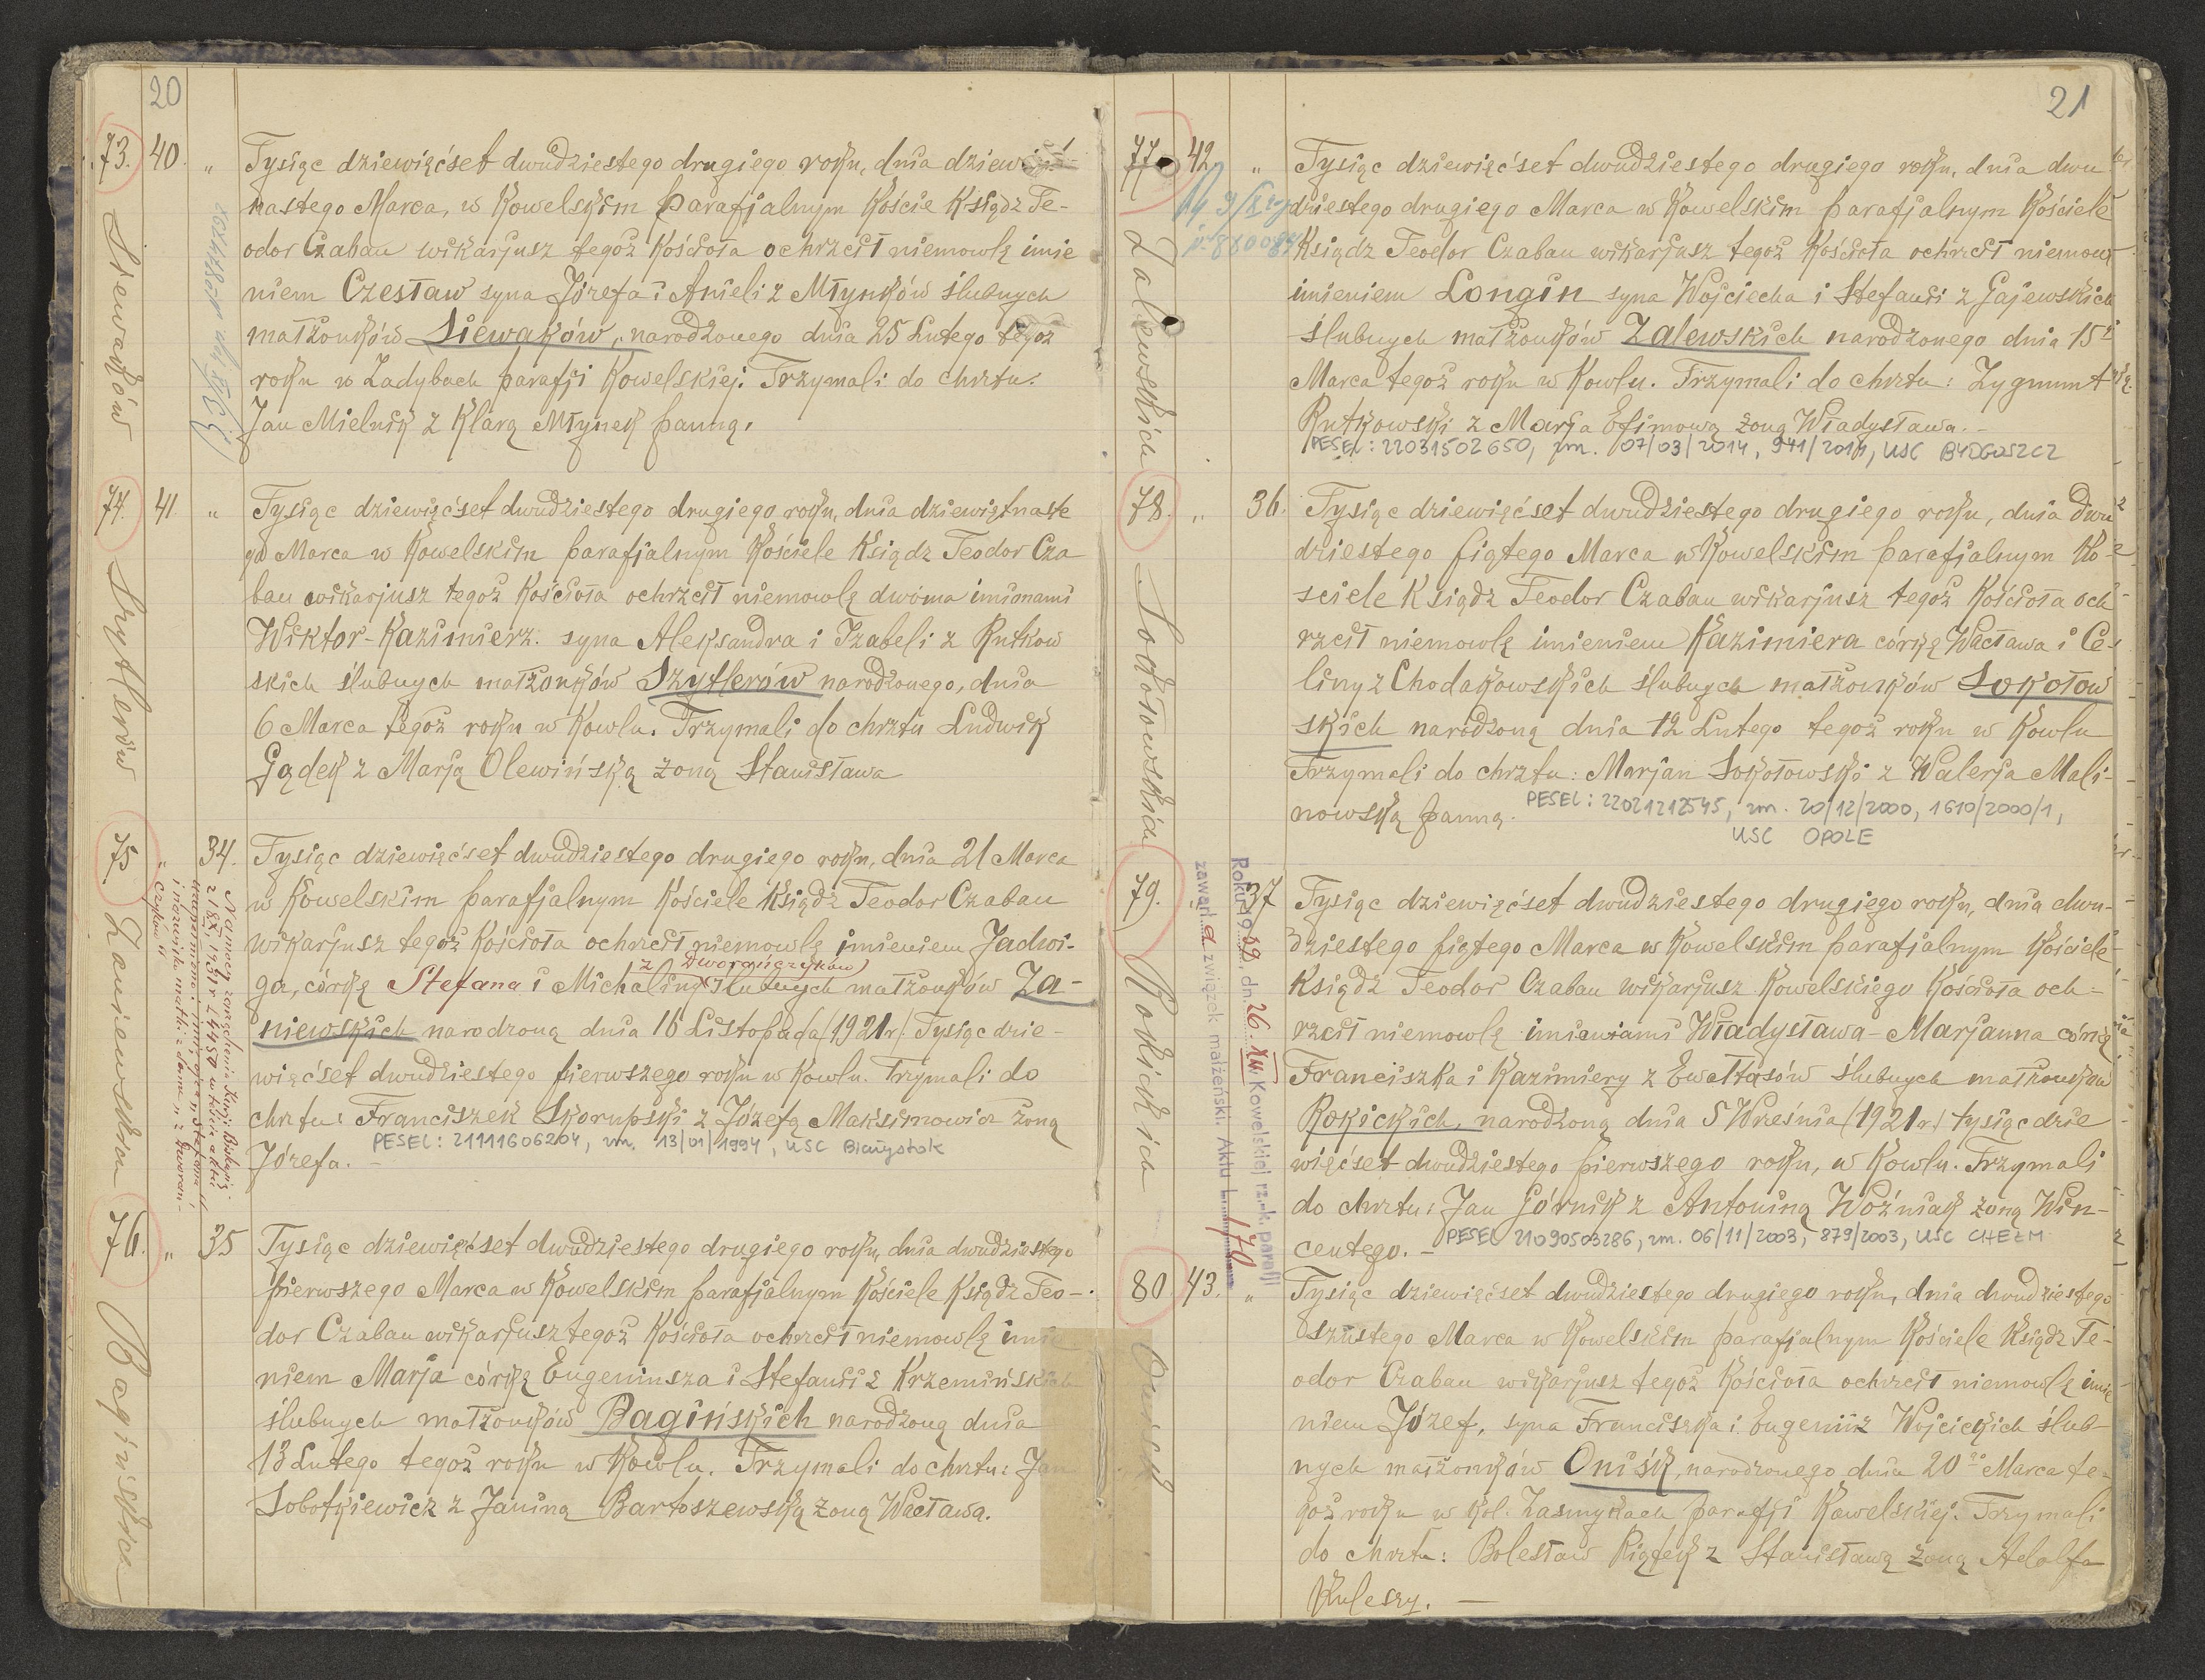 20
73.
40.
"
Siewaków
Tysiąc dziewięćset dwudziestego drugiego roku, dnia dziewięt-
nastego Marca, w Kowelskim parafjalnym Koście Ksiądz Te-
odor Czabau wikarjusz tegoż Kościoła ochrzcił niemowlę imie
niem Czesław syna Józefa i Anieli z Młynków ślubnych
małżonków Siewaków, narodzonego dnia 25 Lutego tegoż
roku w Zadybach parafji Kowelskiej. Trzymali do chrztu:
Jan Mielnik z Klarą Młynek panną.
74.
41
"
Szytlerów
Tysiąc dziewięćset dwudziestego drugiego roku, dnia dziewiętnaste
go Marca w Kowelskim parafjalnym Kościele Ksiądz Teodor Cza
bau wikarjusz tegoż Kościoła ochrzcił niemowlę dwóma imionami
Wiktor-Kazimierz. syna Aleksandra i Izabeli z Rutkow
skich ślubnych małżonków Szytlerów narodzonego, dnia
6 Marca tegoż roku w Kowlu. Trzymali do chrztu Ludwik
Gądek z Marją Olewińską żoną Stanisława
75.
"
34.
Zaniewskich
Tysiąc dziewięćset dwudziestego drugiego roku, dnia 21 Marca
w Kowelskim parafjalnym Kościele Ksiądz Teodor Czabau
wikarjusz tegoż Kościoła ochrzcił niemowlę imieniem Jadwi-
z Dworańczyków
ga, córkę Stefana i Michaliny ślubnych małżonków Za-
niewskich narodzoną dnia 16 Listopada (1921 r.) Tysiąc dzie-
więćset dwudziestego pierwszego roku w Kowlu. Trzymali do
chrztu: Franciszek Skorupski z Józefą Maksimowicz żoną
Józefa. –
PESEL: 21111606204, zm. 13/01/1994, USC Białystok
76.
"
35
Bagińskich
Tysiąc dziewięćset dwudziestego drugiego roku, dnia dwudziestego
pierwszego Marca w Kowelskim parafjalnym Kościele Ksiądz Teo-
dor Czabau wikarjusz tegoż Kościoła ochrzcił niemowlę imie
niem Marja córkę Eugeniusza i Stefanii z Krzemińskich
ślubnych małżonków Bagińskich narodzoną dnia
13 Lutego tegoż roku w Kowlu. Trzymali do chrztu: Jan
Sobotkiewicz z Janiną Bartoszewską żoną Wacława.
21
77
42
"
Zalewskich
Tysiąc dziewięćset dwudziestego drugiego roku, dnia dwu
dziestego drugiego Marca w Kowelskim parafjalnym Kościele
Ksiądz Teodor Czabau wikarjusz tegoż Kościoła ochrzcił niemow
imieniem Longin syna Wojciecha i Stefanii z Gajewskich
ślubnych małżonków Zalewskich narodzonego dnia 15
Marca tegoż roku w Kowlu. Trzymali do chrztu: Zygmunt
Rutkowski z Marja Efimową żoną Władysława. –
PESEL: 22031502650, zm. 07/03/2014, 941/2014, USC BYDGOSZCZ
78.
"
36.
Sokołowskich
Tysiąc dziewięćset dwudziestego drugiego roku, dnia dwu
dziestego piątego Marca w Kowelskim parafjalnym Ko-
sciele Ksiądz Teodor Czabau wikarjusz tegoż Kościoła och
rzcił niemowlę imieniem Kazimiera córkę Wacława i Ce-
liny z Chodakowskich ślubnych małżonków Sokołow
skich narodzoną dnia 12 Lutego tegoż roku w Kowlu
Trzymali do chrztu: Marjan Sokołowski z Walerja Mali-
nowską panną.
PESEL: 22021212545, zm. 20/12/2000, 1610/2000/1,
USC OPOLE
79.
"
37
Rokickich
Roku 1939, dn. 26.XII w Kowelskiej rz.-k. parafji
zawarł a związek małżeński. Aktu L. 170
Tysiąc dziewięćset dwudziestego drugiego roku, dnia dwu-
dziestego piątego Marca w Kowelskim parafjalnym Kościele
Ksiądz Teodor Czabau wikarjusz Kowelskiego Kościoła och-
rzcił niemowlę imieniami Władysława-Marjanna córkę
Franciszka i Kazimiery z Ewałtasów ślubnych małżonków
Rokickich, narodzoną dnia 5 Wreśnia (1921 r.) tysiąc dzie
więćset dwudziestego pierwszego roku, w Kowlu. Trzymali
do chrztu: Jan Górnik z Antoniną Woźniak żoną Win-
centego. –
PESEL 21090503286, zm. 06/11/2003, 879/2003, USC CHEŁM
80.
43.
"
Oniśk
Tysiąc dziewięćset dwudziestego drugiego roku, dnia dwudziestego
szóstego Marca w Kowelskim parafjalnym Kościele Ksiądz Te-
odor Czabau wikarjusz tegoż Kościoła ochrzcił niemowlę imie
niem Józef, syna Franciszka i Eugenii z Wojcickich ślub-
nych małżonków Oniśk, narodzonego dnia 20go Marca te-
goż roku w Kol. Zasmykach parafji Kowelskiej. Trzymali
do chrztu: Bolesław Piątek z Stanisławą żoną Adolfa
Kuleszy. –